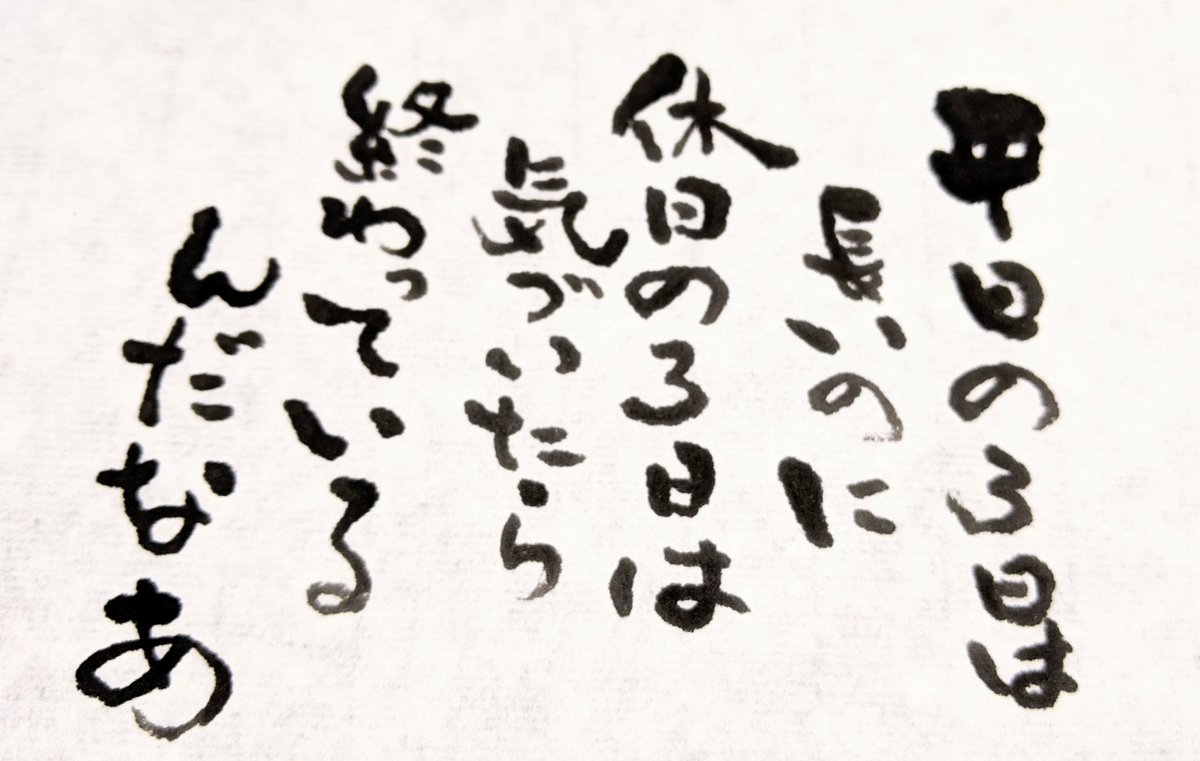 平日の3日は
長いのに
休日の3日は
気づいたら
終わっている
んだなあ